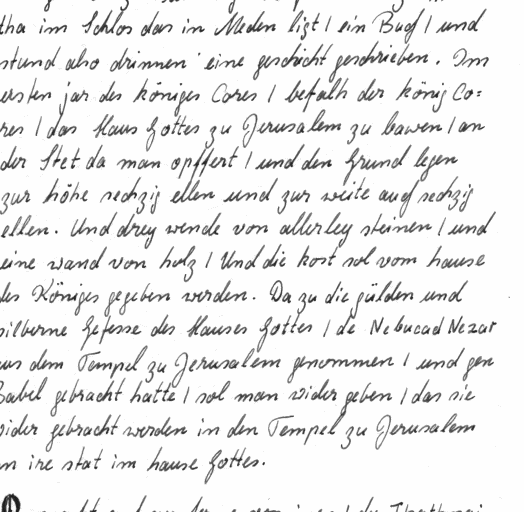 tha im Schlos das in Meden ligt / ein Buch / und
stund also drinnen eine geschicht geschrieben. Im
ersten jar des königes Cores / befalh der könig Co=
res / das Haus Gottes zu Jerusalem zu bawen / an
der Stet da man opffert / und den Grund legen
zur höhe sechzig ellen und zur weite auch sechzig
ellen. Und drey wende von allerley steinen / und
eine wand von holz / Und die kost sol vom hause
des Königes gegeben werden. Da zu die gülden und
silberne Gefesse des Hauses Gottes / de NebucadNezar
aus dem Tempel zu Jerusalem genommen / und gen
Babel gebracht hatte / sol man wider geben / das sie
wider gebracht werden in den Tempel zu Jerusalem
an ire stat im hause Gottes.